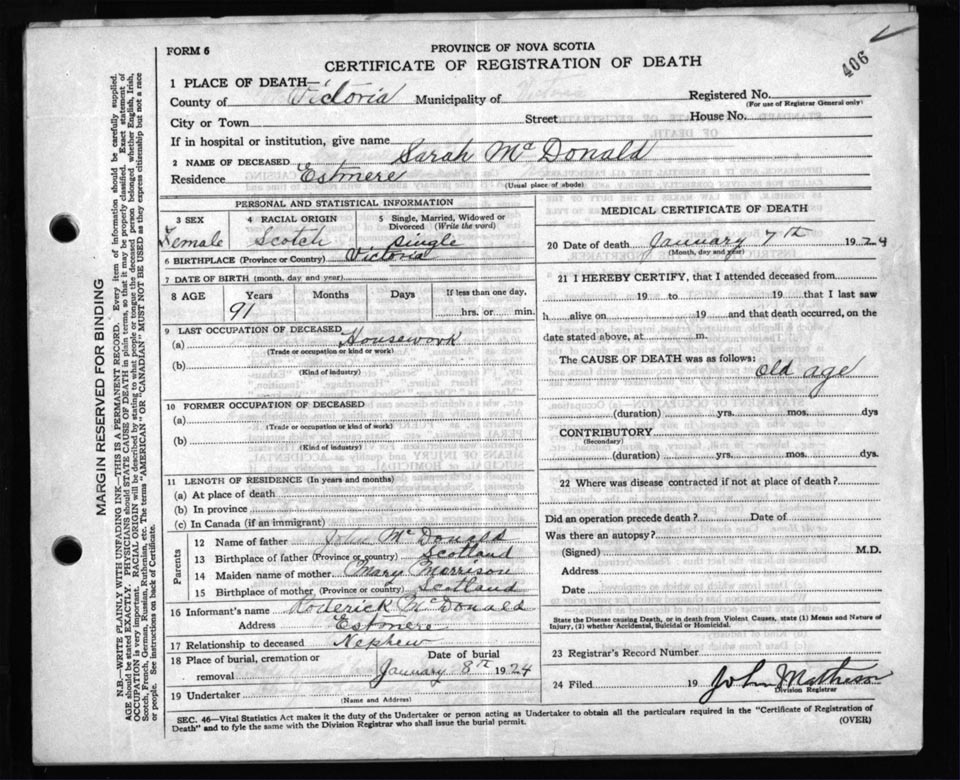 FORM 6
PROVINCE OF NOVA SCOTIA
CERTIFICATE OF REGISTRATION OF DEATH
406
1 PLACE OF DEATH—
County of Victoria Municipality of Registered No.
(For use of Registrar General only)
City or Town Street House No.
If in hospital or institution, give name
2 NAME OF DECEASED Sarah McDonald
Residence Estmere
(Usual place of abode)
PERSONAL AND STATISTICAL INFORMATION
3 SEX 4 RACIAL ORIGIN 5 Single, Married, Widowed or Divorced (Write the word)
Female Scotch Single
6 BIRTHPLACE (Province or Country) Victoria
7 DATE OF BIRTH (month, day and year)
8 AGE Years Months Days If less than one day,
91 hrs. or min.
9 LAST OCCUPATION OF DECEASED
(a) Housework
(Trade or occupation or kind or work)
(b)
(Kind of industry)
10 FORMER OCCUPATION OF DECEASED
(a)
(Trade or occupation or kind of work)
(b)
(Kind of industry)
11 LENGTH OF RESIDENCE (In years and months)
(a) At place of death
(b) In province
(c) In Canada (if an immigrant)
Parents
12 Name of father John McDonald
13 Birthplace of father (Province or country) Scotland
14 Maiden name of mother Mary Morrison
15 Birthplace of mother (Province or country) Scotland
16 Informant's name Roderick McDonald
Address Estmere
17 Relationship to deceased Nephew
18 Place of burial, cremation or removal Date of burial
January 8th 1924
19 Undertaker
(Name and Address)
MEDICAL CERTIFICATE OF DEATH
20 Date of death January 7th 1924
(Month, day and year)
21 I HEREBY CERTIFY, that I attended deceased from
19 to 19 that I last saw
h alive on 19 and that death occurred, on
date stated above, at m.
The CAUSE OF DEATH was as follows:
old age
(duration) yrs. mos. dys
CONTRIBUTORY
(Secondary)
(duration) yrs. mos. dys.
22 Where was disease contracted if not at place of death?
Did an operation precede death? Date of
Was there an autopsy?
(Signed) M.D.
Address
Date
State the Disease causing Death, or in death from Violent Causes, state (1) Means and Nature of Injury, (2) whether Accidental, Suicidal or Homicidal.
23 Registrar's Record Number
24 Filed 19 John Matheson
Division Registrar
SEC. 46—Vital Statistics Act makes it the duty of the Undertaker or person acting as Undertaker to obtain all the particulars required in the "Certificate of Registration of
Death" and to fyle the same with the Division Registrar who shall issue the burial permit. (OVER)
MARGIN RESERVED FOR BINDING
N.B.—WRITE PLAINLY WITH UNFADING INK—THIS IS A PERMANENT RECORD. Every item of information should be carefully supplied.
AGE should be stated EXACTLY. PHYSICIANS should STATE CAUSE OF DEATH in plain terms, so that it may be properly classified. Exact statement of
OCCUPATION is very important. RACIAL ORIGIN will be described by stating to what people or tongue the deceased person belonged whether English, Irish,
Scotch, French, German, Russian, Ruthenian, etc. The terms "AMERICAN" OR "CANADIAN" MUST NOT BE USED as they express citizenship but not a race
or people. See instructions on back of Certificate.